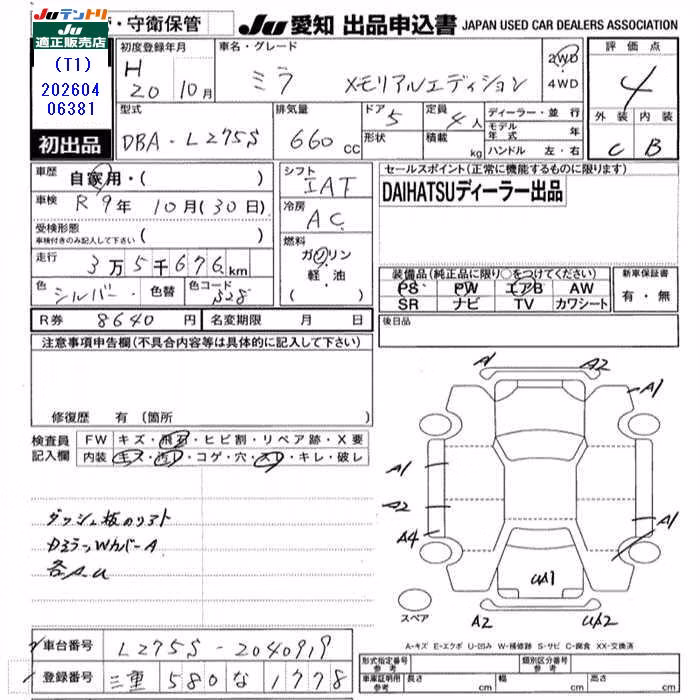 Juテントリ
JU
適正販売店
(T1)
202604
06381
初出品
・守衛保管
JU 愛知 出品申込書 JAPAN USED CAR DEALERS ASSOCIATION
初度登録年月
H
20 10月
車名・グレード
ミラ メモリアルエディション
2WD
4WD
評価点
4
外装 内装
C B
型式
DBA-L275S
排気量
660 cc
ドア 5
形状
定員 4人
積載 kg
ディーラー・並行
モデル年式 年
ハンドル 左・右
車歴 自家用・( )
車検 R9年 10月(30日)
受検形態
車検付きのみ記入して下さい ( )
走行 3万5千676km
色 シルバー 色替 色コード S28
シフト
IAT
冷房
AC
燃料
ガソリン
軽・油
( )
セールスポイント(正常に機能するものに限ります)
DAIHATSUディーラー出品
装備品(純正品に限り○をつけてください)
PS PW エアB AW
SR ナビ TV カワシート
新車保証書
有・無
R券 8640円 名変期限 月 日
後日品
注意事項申告欄(不具合内容等は具体的に記入して下さい)
修復歴 有(箇所
検査員
記入欄
FW キズ・飛石・ヒビ割・リペア跡・X要
内装 キズ・汚レ・コゲ・穴・スレ・キレ・破レ
ダッシュ板のリフト
カミラーWカバーA
各A.U
A A2
A1
A1
A2
A4
A1
UA1
A2 UA2
スペア
A-キズ E-エクボ U-凹み W-補修跡 S-サビ C-腐食 XX-交換済
車台番号 L275S-2040919
登録番号 三重 580 な 1778
形式指定番号
参考
類別区分番号
参考
車庫証明用
参考
長さ cm 幅 cm 高さ cm